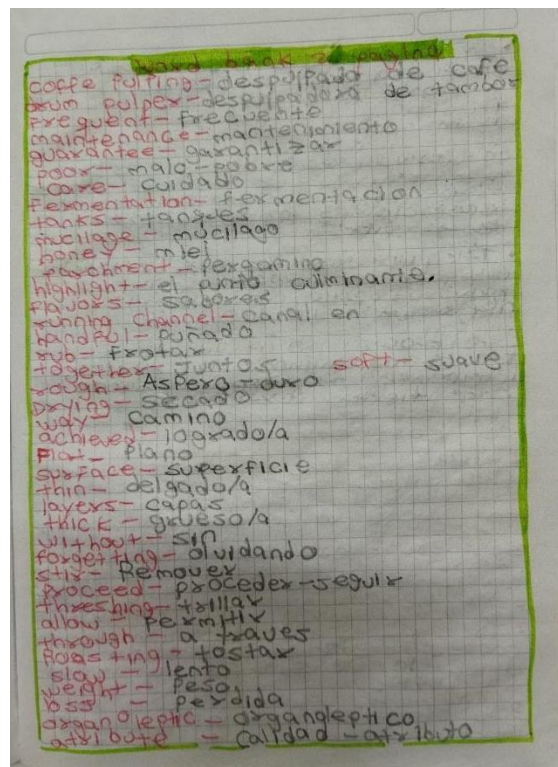 word bank 2 pagina
coffe pulping - despulpado de cafe
drum pulper - despulpadora de tambor
Frequent - frecuente
maintenance - mantenimiento
guarantee - garantizar
poor - malo - pobre
care - cuidado
Fermentation - fermentacion
tanks - tanques
mucilage - mucilago
honey - miel
parchment - pergamino
highlight - el culminante.
Flavors - sabores
running channel - canal en
handful - puñado
rub - frotar
together - juntos soft - suave
rough - Aspero - duro
Drying - secado
way - camino
achieved - logrado/a
Flat - plano
surface - superficie
thin - delgado/a
layers - capas
thick - grueso/a
without - sin
forgetting - olvidando
stir - Remover
proceed - proceder - seguir
threshing - trillar
allow - permitir
through - a traves
Roasting - tostar
slow - lento
weight - peso
loss - perdida
organoleptic - organoleptico
atribute - calidad - atributo